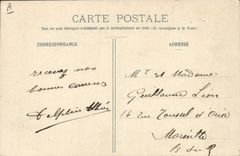 A
CARTE POSTALE
Tous les pays étrangers n'acceptent pas la correspondance au recto (Se renseigner à la Poste)
CORRESPONDANCE
ADRESSE
recevez nos
bonnes
Delphine
Mr et Madame
Guillaume Léon
14 rue
Marseille
B. du R.